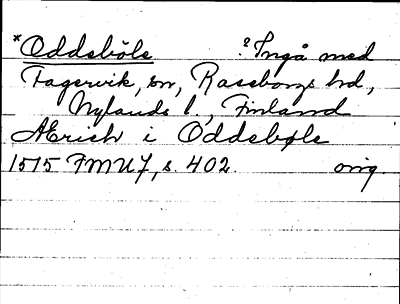 *Oddsböle ?Ingå med
Fagervik, sn, Raseborgs hd,
Nylands l., Finland
AErich i Oddsbøle
1515 FMU7, s. 402. orig.